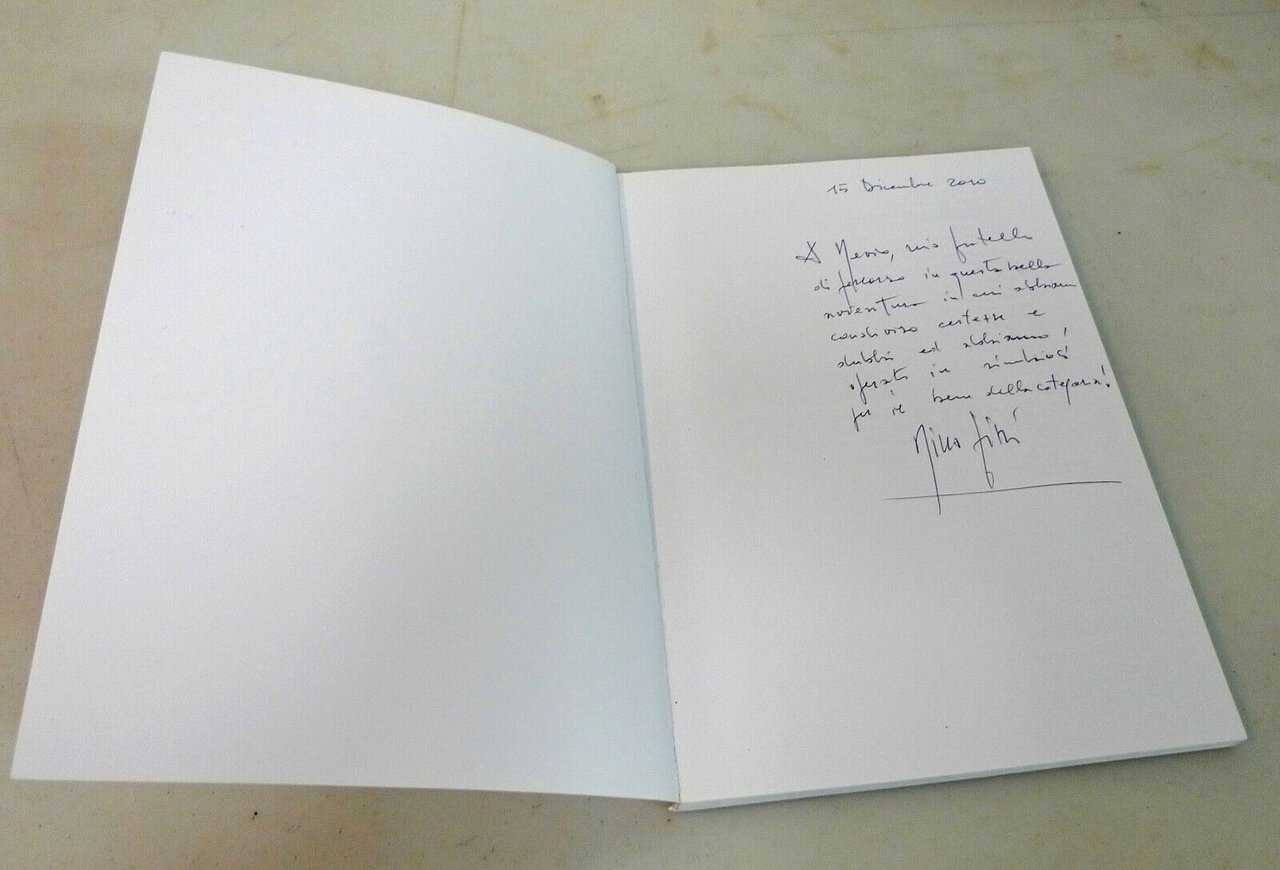 15 Dicembre 2010
A Nevio, mio fratello
di percorso in questa bella
avventura in cui abbiamo
condiviso certezze e
dubbi ed abbiamo
operato in simbiosi
per il bene della categoria!
Nino